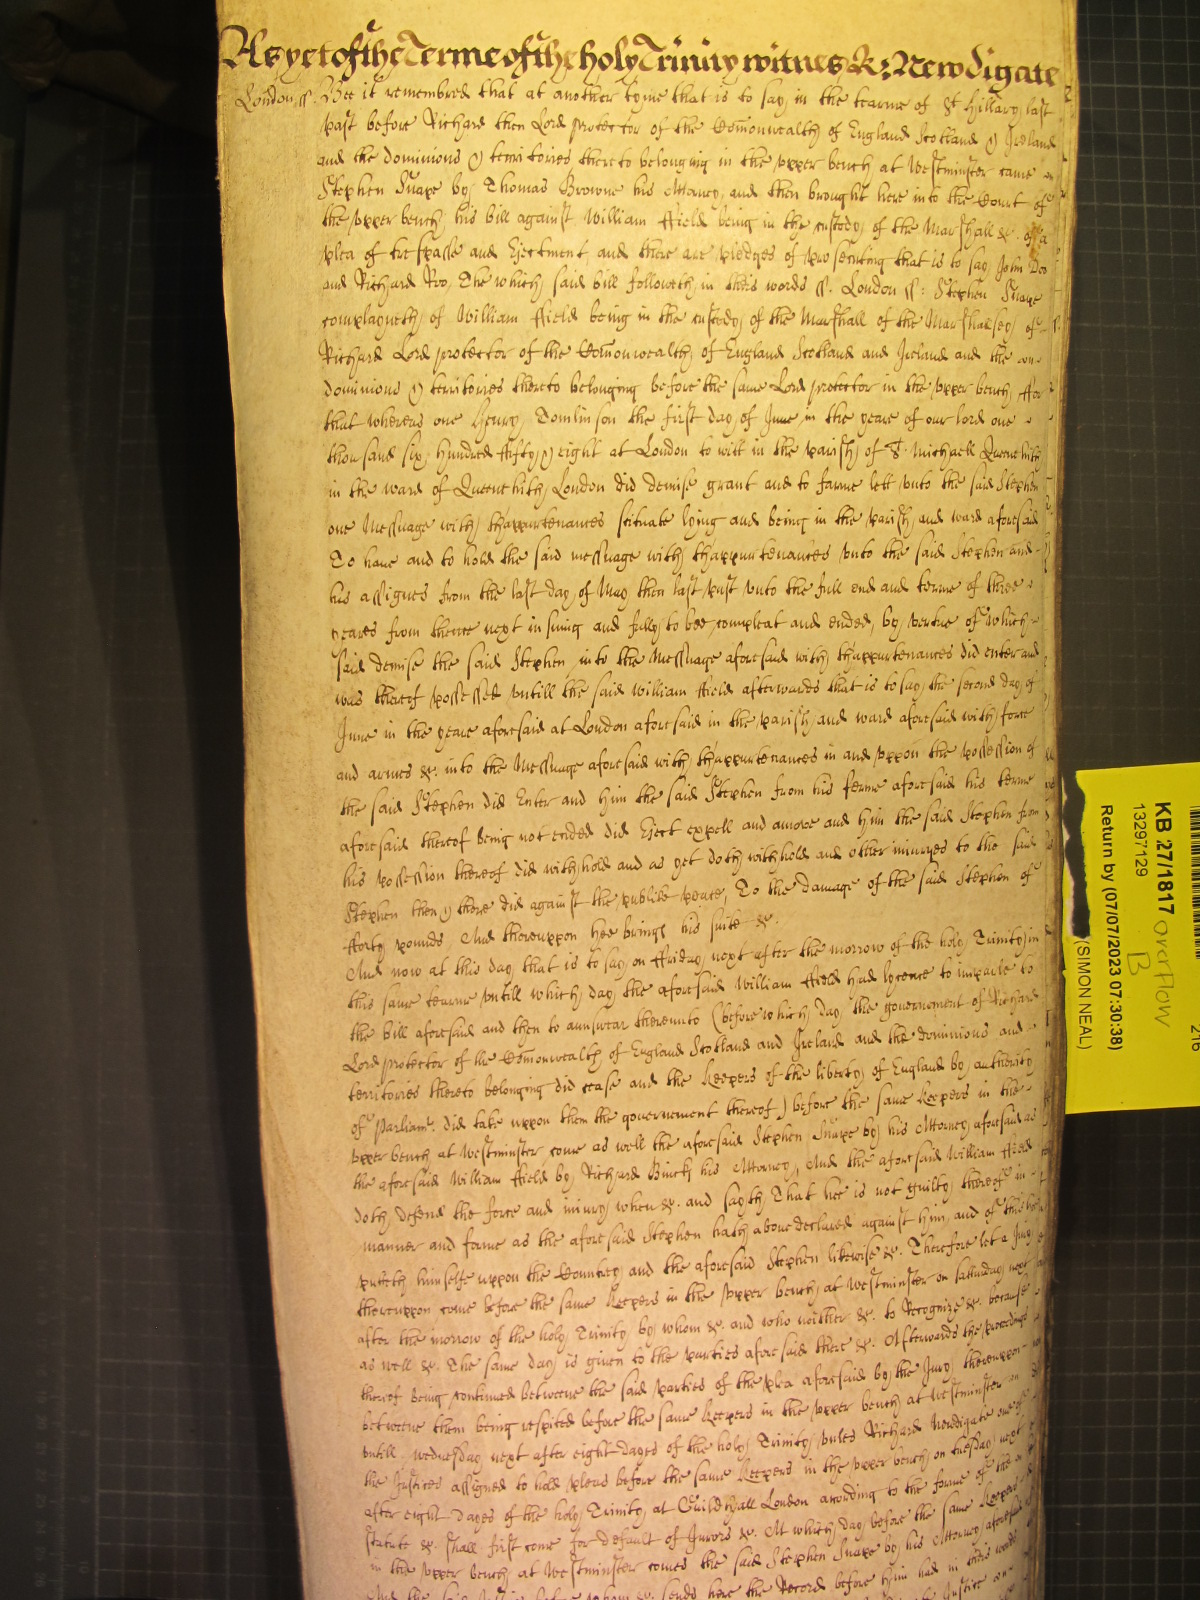 As yet of the Terme of the holy Trinity witnes R: Newdigate
London ss. Bee it remembred that at another tyme that is to say in the tearme of St Hillary last
past before Richard then Lord protector of the Comonwealth of England Scotland & Ireland
and the dominions & territories thereto belonging in the upper bench at Westminster came
Stephen Snape by Thomas Browne his Attorney and then brought here into the Court of
the upper bench his bill against William Ffield being in the custody of the Marshall &c. of a
plea of trespasse and Ejectment and there are pledges of prosecuting that is to say John Doo
and Richard Roo, The which said bill followeth in theis words ss. London ss: Stephen Snape
complayneth of William Ffield being in the custody of the Marshall of the Marshalsey of
Richard Lord protector of the Comonwealth of England Scotland and Ireland and the
dominions & territories thereto belonging before the same Lord protector in the upper bench Ffor
that whereas one Henry Tomlinson the first day of June in the yeare of our lord one
thousand six hundred fifty & eight at London to witt in the parish of St. Michaell Queenhith
in the ward of Queenhith London did demise grant and to farme lett unto the said Stephen
one Messuage with thappurtenances scituate lying and being in the parish and ward aforesaid
To have and to hold the said messuage with thappurtenances unto the said Stephen and
his assignes from the last day of May then last past unto the full end and terme of three
yeares from thence next insuing and fully to bee compleat and ended, by vertue of which
said demise the said Stephen into the Messuage aforesaid with thappurtenances did enter and
was thereof possessed untill the said William Ffield afterwards that is to say the second day of
June in the yeare aforesaid at London aforesaid in the parish and ward aforesaid with force
and armes &c. into the Messuage aforesaid with thappurtenances in and uppon the possession of
the said Stephen did Enter and him the said Stephen from his ferme aforesaid his terme
aforesaid thereof being not ended did Eject expell and amove and him the said Stephen from
his possession thereof did withhold and as yet doth withhold and other injuryes to the said
Stephen then & there did against the publike peace, To the damage of the said Stephen of
fforty pounds, And thereuppon hee brings his suite &c.
And now at this day that is to say on Ffriday next after the morrow of the holy Trinity in
this same tearme untill which day the aforesaid William Ffield had lycence to imparle to
the bill aforesaid and then to aunswear thereunto (before which day the government of Richard
Lord protector of the Comonwealth of England Scotland and Ireland and the dominions and
territories thereto belonging did cease and the Keepers of the liberty of England by authority
of Parliamt. did take uppon them the governement thereof) before the same Keepers in the
upper bench at Westminster come as well the aforesaid Stephen Snape by his Attorney aforesaid as
the aforesaid William Ffield by Richard Birch his Attorney, And the aforesaid William Ffield
doth defend the force and injury when &c. and sayth That hee is not guilty thereof in
manner and forme as the aforesaid Stephen hath above declared against him, and of this hee
putteth himselfe uppon the Countrey and the aforesaid Stephen likewise &c. Therefore let a Jury
thereuppon come before the same Keepers in the upper bench at Westminster on Satturday next
after the morrow of the holy Trinity by whom &c. and who neither &c. to Recognize &c. because
as well &c. The same day is given to the parties aforesaid there &c. Afterwards the proceedings
thereof being continued betweene the said parties of the plea aforesaid by the Jury thereuppon
betweene them being respited before the same Keepers in the upper bench at Westminster
untill wednesday next after eight dayes of the holy Trinity unles Richard Newdigate one of
the Justices assigned to hold pleas before the same Keepers in the upper bench on tuesday next
after eight dayes of the holy Trinity at Guildhall London according to the forme of the
statute &c. shall first come for default of Jurors &c. At which day before the same Keepers
in the upper bench at Westminster comes the said Stephen Snape by his Attorney aforesaid
And the said Justice before whom &c. sends here the Record before him had in theis words
KB 27/1817 overflow
B
13297129
Return by (07/07/2023 07:30:38)
(SIMON NEAL)